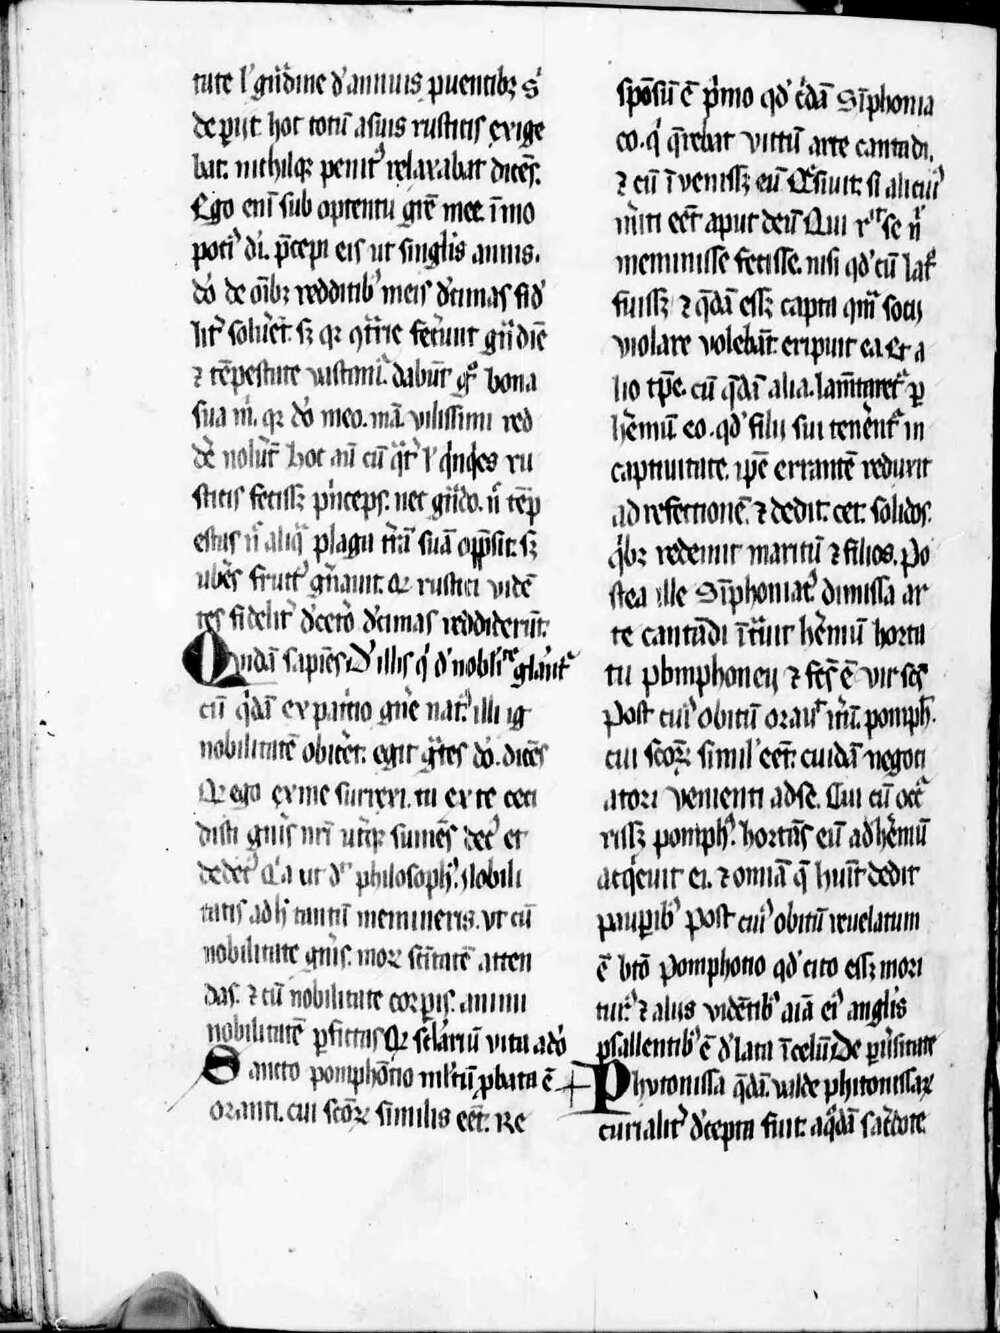 tute l' gͣndine d' annuis puentibꝫ S'
de pijt. hoc totū a suis rusticis exige
bat. nichilqꝫ penitꝰ relaxabat dicēs.
Ego eni sub optentu grē mee. īmo
potiꝰ di. p̄cepi eis ut singl'is annis.
dō de oībꝫ redditibꝰ meis d'cimas fid'
lit' solu'et. sꝫ qꝛ ꝯͭrrie fec'unt gͣndīe
⁊ tēpestate uastanti. dabūt gͦ bona
sua m. qꝛ dō meo. mā uilissimi red
d'e nolu't. Hoc aū cū qͣt' l' qͥnqꝫes ru
sticis fecissꝫ pͥnceps. nec gͣndo. n̄ tēp
estas n̄ aliqͣ plaga t'rā suā opp̄ssit. sꝫ
ub'es fructꝰ gn̄auit. Qꝛ rustici uidē
tes fidelit' d'cet'o d'cimas reddiderūt.
Quidā sapiēs. D' illis qͥ d' nobl'ire gl'āntᷣ
cū qͥdā ex pat'io gn̄e natꝰ illi ig
nobilitatē obic'et. egit gͣtes dō. dicēs
Qꝛ ego ex me surrexi. tu ex te ceci
disti gn̄is nr̄i ut'qꝫ sumēs decꝰ et
dedecꝰ Cͣa ut d'r philosophꝰ. Nobili
tatis ad h' tantū memineris. ut cū
nobilitate gn̄is. moꝝ sc̄itatē atten
das. ⁊ cū nobilitate corpis. animi
nobilitatē ꝑficias Qꝛ sc'lariū uita a dō
Sancto pomphōnio ml'tū ꝓbata ē
oranti. cui sc̄oꝝ similis eēt. Re
spōsū ē pͥmo qd' c'dā Sīphonia
co. qͥ q̄rebat uictū arte cantādi.
⁊ cū īuenissꝫ eū Q̄siuit. si alicuiꝰ
m'iti eēt aput deū Qui rᵗ se n̄
meminisse fecisse. nisi qd' cū lat'
fuissꝫ ⁊ q̄dā essꝫ capta qm̄ socij
violare volebāt. eripuit ea. Et a
lio tp̄e. cū q̄dā alia. lam̄taretᷣ ꝑ
h'emū eo. qd' filij sui tenerentᷣ in
captiuitate. ip̄e errantē reduxit
ad refectionē. ⁊ dedit. cet. solidos.
qͥbꝫ redemit maritū ⁊ filios. Po
stea ille Sīphoniacꝰ dimissa ar
te cantādi ītͣuit h'emū horta
tu pomphoneij ⁊ fc̄s ē vir sc̄s
Post cuiꝰ obitū orauᷣ it'ū. pomphꝰ.
cui sc̄oꝝ simil' eēt. cuidā negoti
atori venienti ad se. Cui cū occᷣ
rissꝫ pomphꝰ. hortās eū ad h'emū
acq'euit ei. ⁊ omīa q̄ h'uit dedit
pauꝑibꝰ Post cuiꝰ obitū reuelatum
ē bt̄o Pomphonio qd' cito essꝫ mori
turꝰ ⁊ alijs vidētibꝰ aīa eiꝰ anglis
psallentibꝰ ē d'lata ī celū. De pu'sitate
Phytonissa q̄dā. valde phitonissaꝝ
curialit' d'cepta fuit. a qͦdā sac'dote.